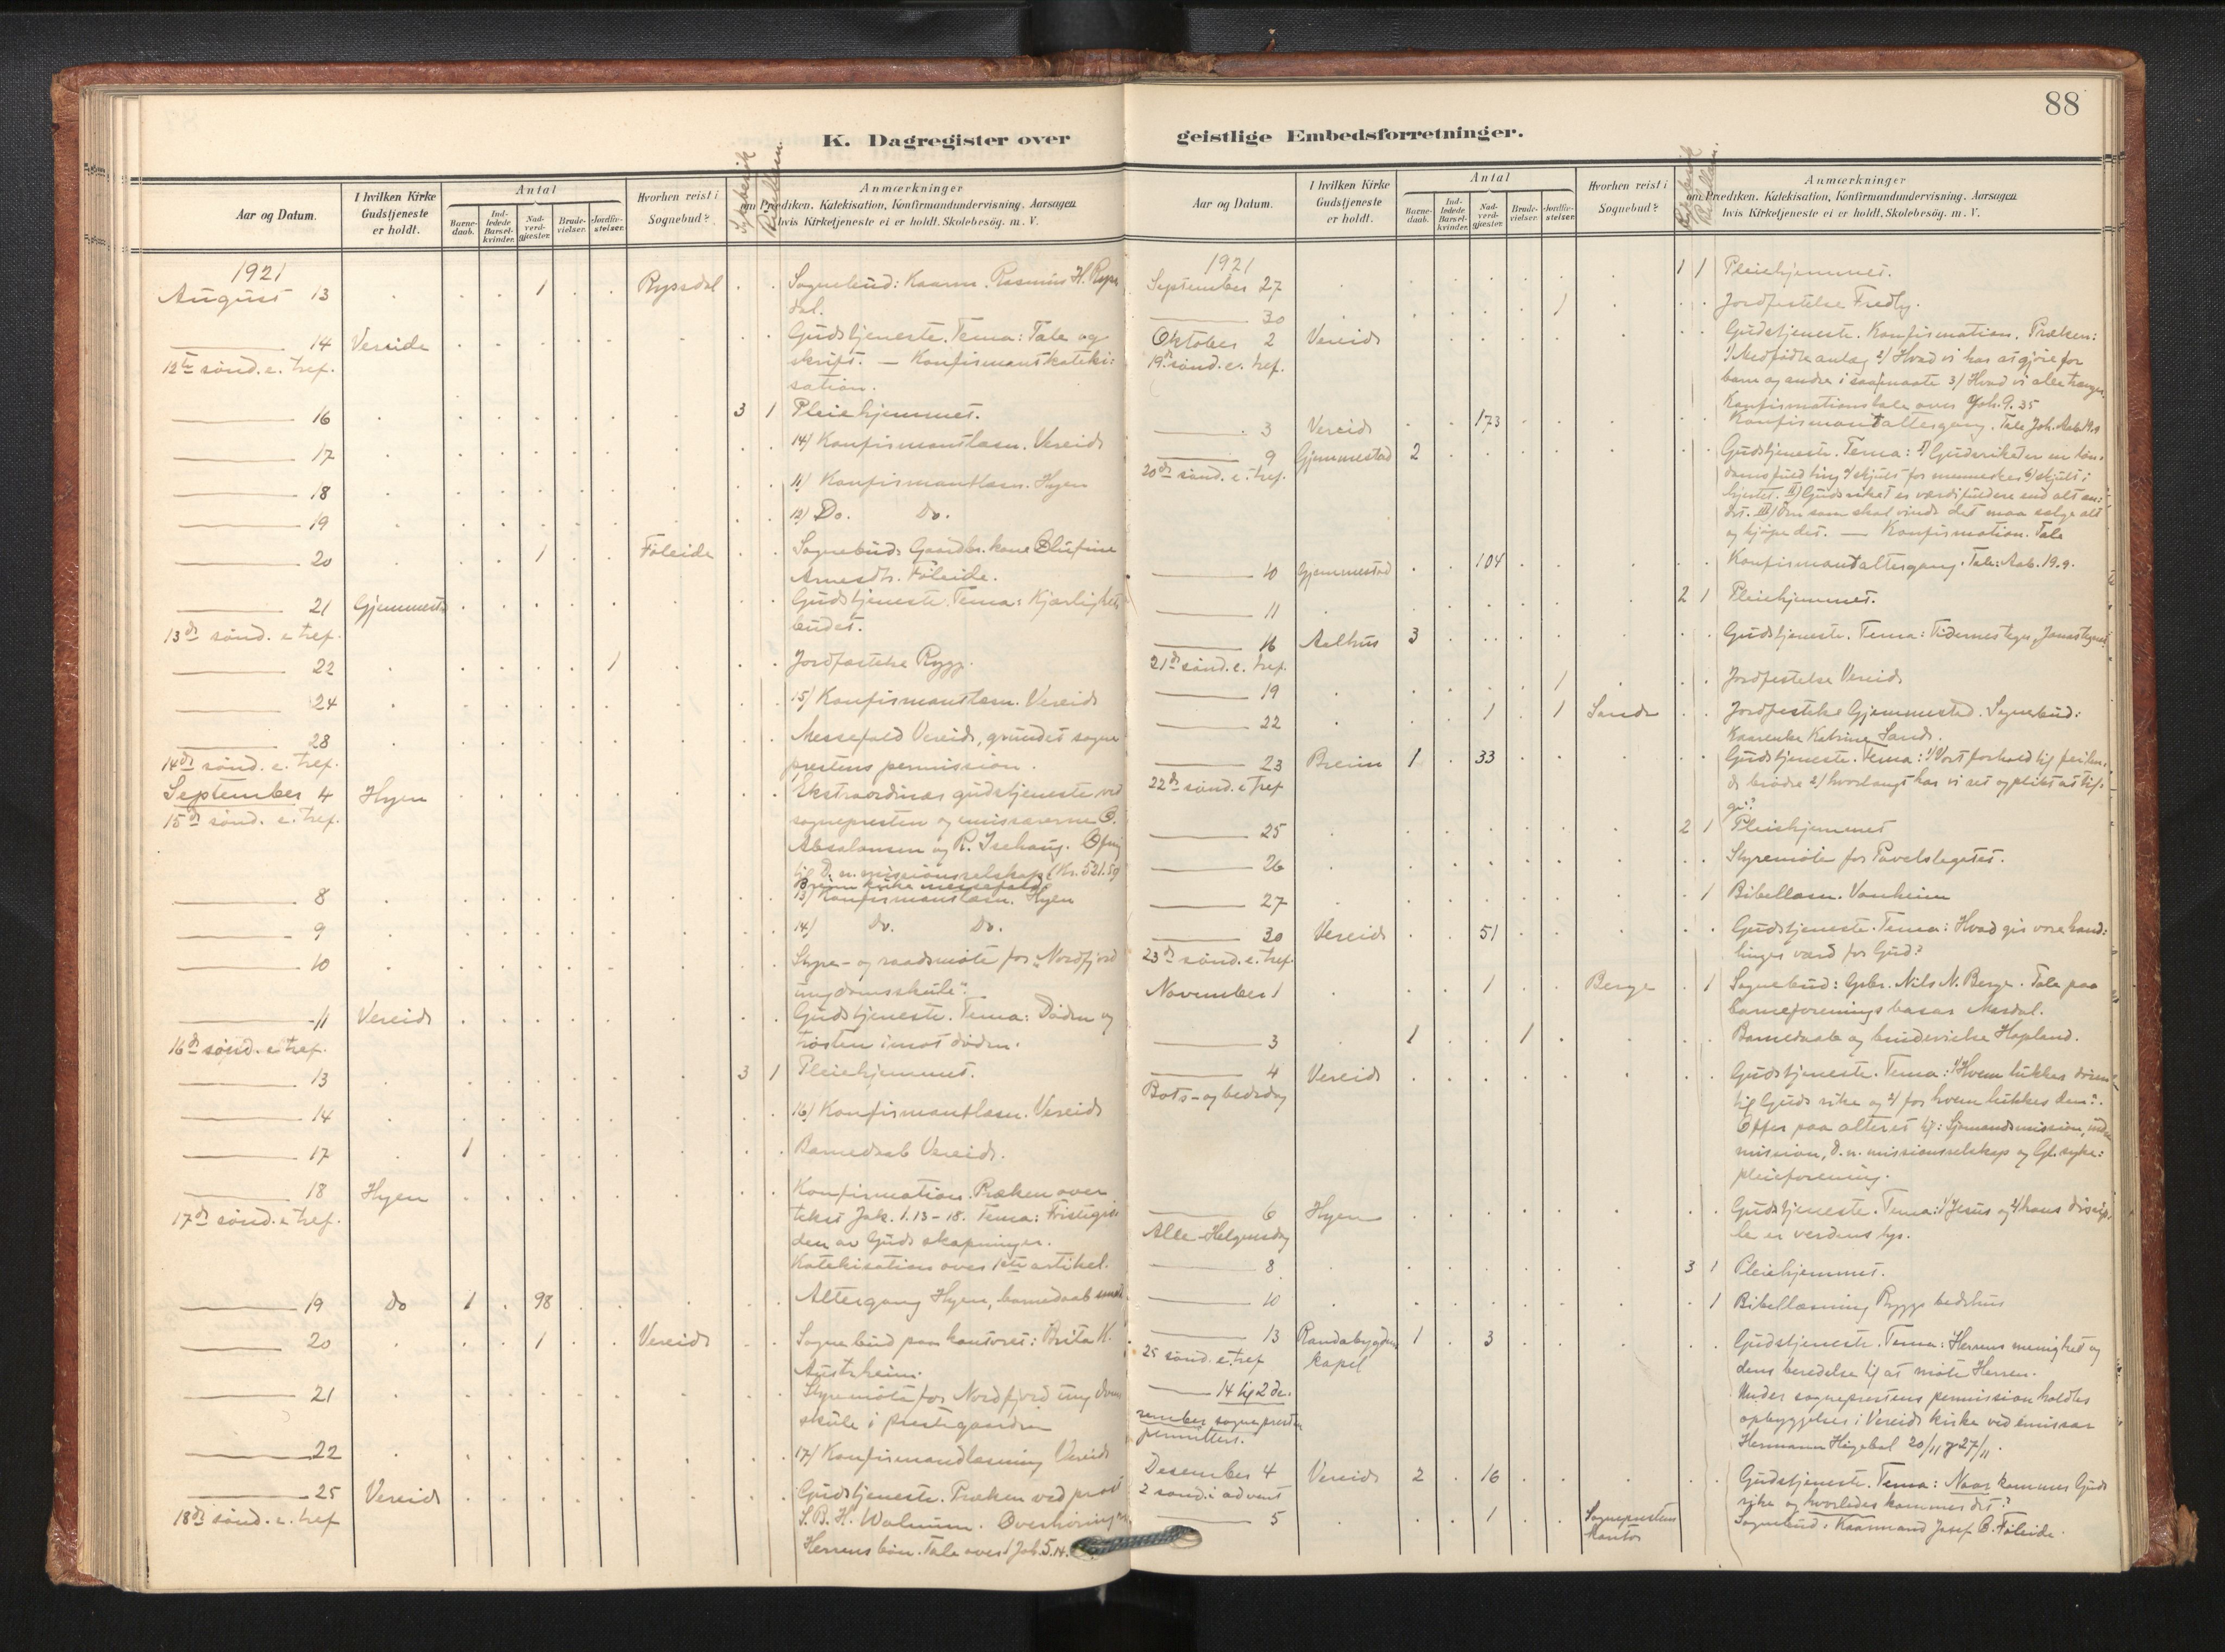 88
K. Dagregister over
geistlige Embedsforretninger.
Aar og Datum.
I hvilken Kirke Gudstjeneste er holdt.
Antal
Barne-daab.
Ind-ledede Barsel-kvinder.
Nad-verd-gjæster.
Brude-vielser.
Jordfæ-stelser.
Hvorhen reist i Sognebud?
Sykebesøk
Bibellæsn.
Anmærkninger
om Prædiken, Katekisation, Konfirmandundervisning. Aarsagen
hvis Kirketjeneste ei er holdt. Skolebesög. m. V.
1921
August 13 1 Rypsdal Sognebud: Kaarm. Rasmus H. Ryps
dal.
14 Vereide Gudstjeneste. Tema: Tale og
12te sønd. e. tref. skrift. — Konfirmantkateki:
sation.
16 3 1 Pleiehjemmet.
17 14) Konfirmantlæsn. Vereide
18 11) Konfirmantlæsn. Hyen
19 12) Do. Do.
20 1 Føleide Sognebud: Gaardbr. kone Olufine
Arnesdtr. Føleide.
21 Gjemmest Gudstjeneste. Tema: Kjærlighets
13de sønd. e. tref. budet.
22 1 Jordfæstelse Rygg.
24 15) Konfirmantlæsn. Vereide
28 Messefald Vereide, grundet sogne
14de sønd. e. tref. prestens permission.
September 4 Hyen Ekstraordinær gudstjeneste ved
15de sønd. e. tref. sognepresten og emissærerne O.
Absalonsen og R. Isehaug. Offring
til D. n. missionsselskap (Kr. 521.59
Breim kirke messefald
8 13) Konfirmantlæsn. Hyen
9 14) Do. Do.
10 Styre- og raadsmøte for "Nordfjord
ungdomsskule".
11 Vereide Gudstjeneste. Tema: Døden og
16de sønd. e. tref. trøsten imot døden.
13 3 1 Pleiehjemmet.
14 16) Konfirmantlæsn. Vereide
17 1 Barnedaab Vereide.
18 Hyen Konfirmation. Præken over
17de sønd. e. tref. tekst Jak. 1.13-18. Tema: Førstegrø
den av Guds skapninger.
Katekisation over 1ste artikel.
19 Do 1 98 Altergang Hyen, barnedaab
20 1 Vereide Sognebud paa kontoret: Brita K.
Austrheim.
21 Styremøte for Nordfjord ungdoms
skule i prestegaarden
22 17) Konfirmandlæsning Vereide
25 Vereide Gudstjeneste. Præken ved prost
18de sønd. e. tref S. B. H. Walnum. Overhøring
Herrens bøn. Tale over 1 Joh. 5.14.
Aar og Datum.
I hvilken Kirke Gudstjeneste er holdt.
Antal
Barne-daab.
Ind-ledede Barsel-kvinder.
Nad-verd-gjæster.
Brude-vielser.
Jordfæ-stelser.
Hvorhen reist i Sognebud?
Anmærkninger
om Prædiken, Katekisation, Konfirmandundervisning. Aarsagen
hvis Kirketjeneste ei er holdt. Skolebesög. m. V.
1921
September 27 1 1 Pleiehjemmet.
30 1 Jordfæstelse Fredly.
Oktober 2 Vereide Gudstjeneste. Konfirmation. Præken:
19de sønd. e. tref. 1) Medfødte anlæg 2) Hvad vi har at gjøre for
barn og andre i saa maate 3) Hvad vi alle trænger.
Konfirmationstale over Joh. 9.35
3 Vereide 173 Konfirmantaltergang. Tale Joh. Aab. 19.9
9 Gjemmestad 2 Gudstjeneste. Tema: I) Gudsriket er en løn:
20de sønd. e. tref. domsfuld ting a) skjult for mennesker b) skjult i
hjertet. II) Gudsriket er værdifuldere end alt an:
det. III) Den som skal vinde det maa sælge alt
og kjøpe det. — Konfirmation. Tale
10 Gjemmestad 104 Konfirmantaltergang. Tale: Aab. 19.9.
11 2 1 Pleiehjemmet.
16 Aalhus 3 Gudstjeneste. Tema: Tidernes tegn, Jonastegnet
21de sønd. e. tref.
19 1 Jordfestelse Vereide
22 1 1 Sande Jordfestelse Gjemmestad. Sognebud:
Kaarenke Katrine Sande.
23 Breim 1 33 Gudstjeneste. Tema: 1) Vort forhold til feilen:
22de sønd. e. tref de brødre 2) hvorlangt har vi ret og plikt at tilgi?
25 2 1 Pleiehjemmet
26 Styremøte for Pavelslegatet.
27 1 Bibellæsn. Vonheim
30 Vereide 51 Gudstjeneste. Tema: Hvad gir vore hand:
23de sønd. e. tref. linger værd for Gud?
November 1 1 Berge 1 Sognebud: Gbr. Nils N. Berge. Tale paa
barneforenings basar Mardal.
3 1 1 Barnedaab og brudevielse Hopland.
4 Vereide Gudstjeneste. Tema: 1) Hvem lukker døren
Bots- og bededag til Guds rike og 2) for hvem lukkes den?.
Offer paa alteret til: Sjømandsmission, indre
mission, D. n. missionsselskap og Gl. syke:
pleieforening.
6 Hyen Gudstjeneste. Tema: 1) Jesus og 2) hans discip
Alle-Helgensdag le er verdens lys.
8 3 1 Pleiehjemmet.
10 1 Bibellæsning Rygg bedehus
13 Randabygdens 1 3 Gudstjeneste. Tema: Herrens menighet og
25 sønd. e. tref kapel dens beredelse til at møte Herren.
14 til 2 de: Under sogneprestens permission holdtes
sember sognepresten opbyggelser i Vereide kirke ved emissær
permittert. Hermann Høgebøl 20/11 og 27/11.
Desember 4 Vereide 2 16 Gudstjeneste. Tema: Naar kommer Guds
2 sønd. i advent rike og hvorledes kommer det?
5 1 Sogneprestens Sognebud: Kaarmand Josef O. Føleide.
kontor